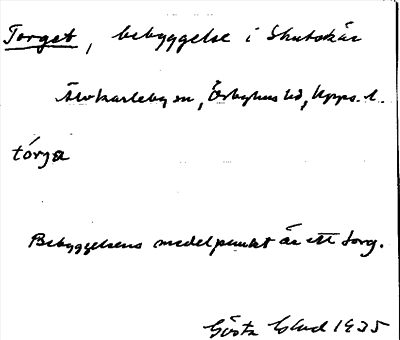 Torget, bebyggelse i Skutskär
Älvkarleby sn, Örbyhus hd, Upps. l.
tórgə
Bebyggelsens medelpunkt är ett torg.
Gösta Eklund 1935